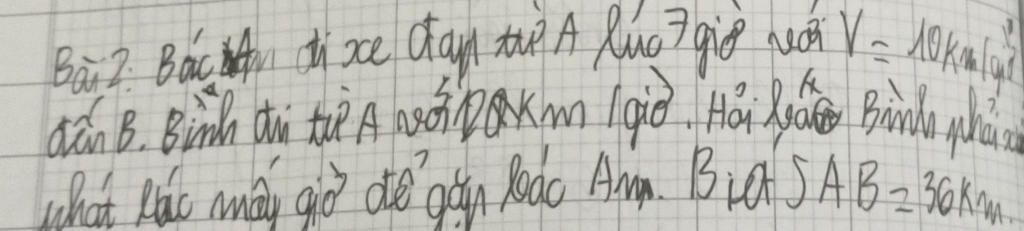 Bài 2: Bác An đi xe đạp từ A lúc 7 giờ với V = 10km/giờ
đến B. Bình đi từ A với km/giờ. Hỏi Bình phải
phát lúc mấy giờ để gặp bác An. Biết SAB = 36km.